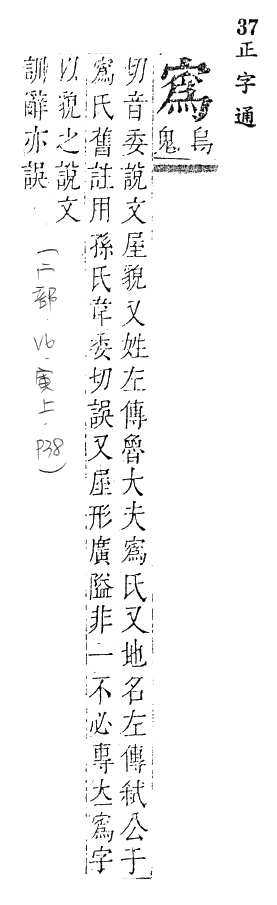 37正字通
寪
烏
鬼
切音委說文屋貌又姓左傳魯大夫寪氏又地名左傳弒公于
寪氏舊註用孫氏韋委切誤又屋形廣隘非一不必專大寪字
以貌之說文
訓辭亦誤
(宀部 V6.寅上.P38)